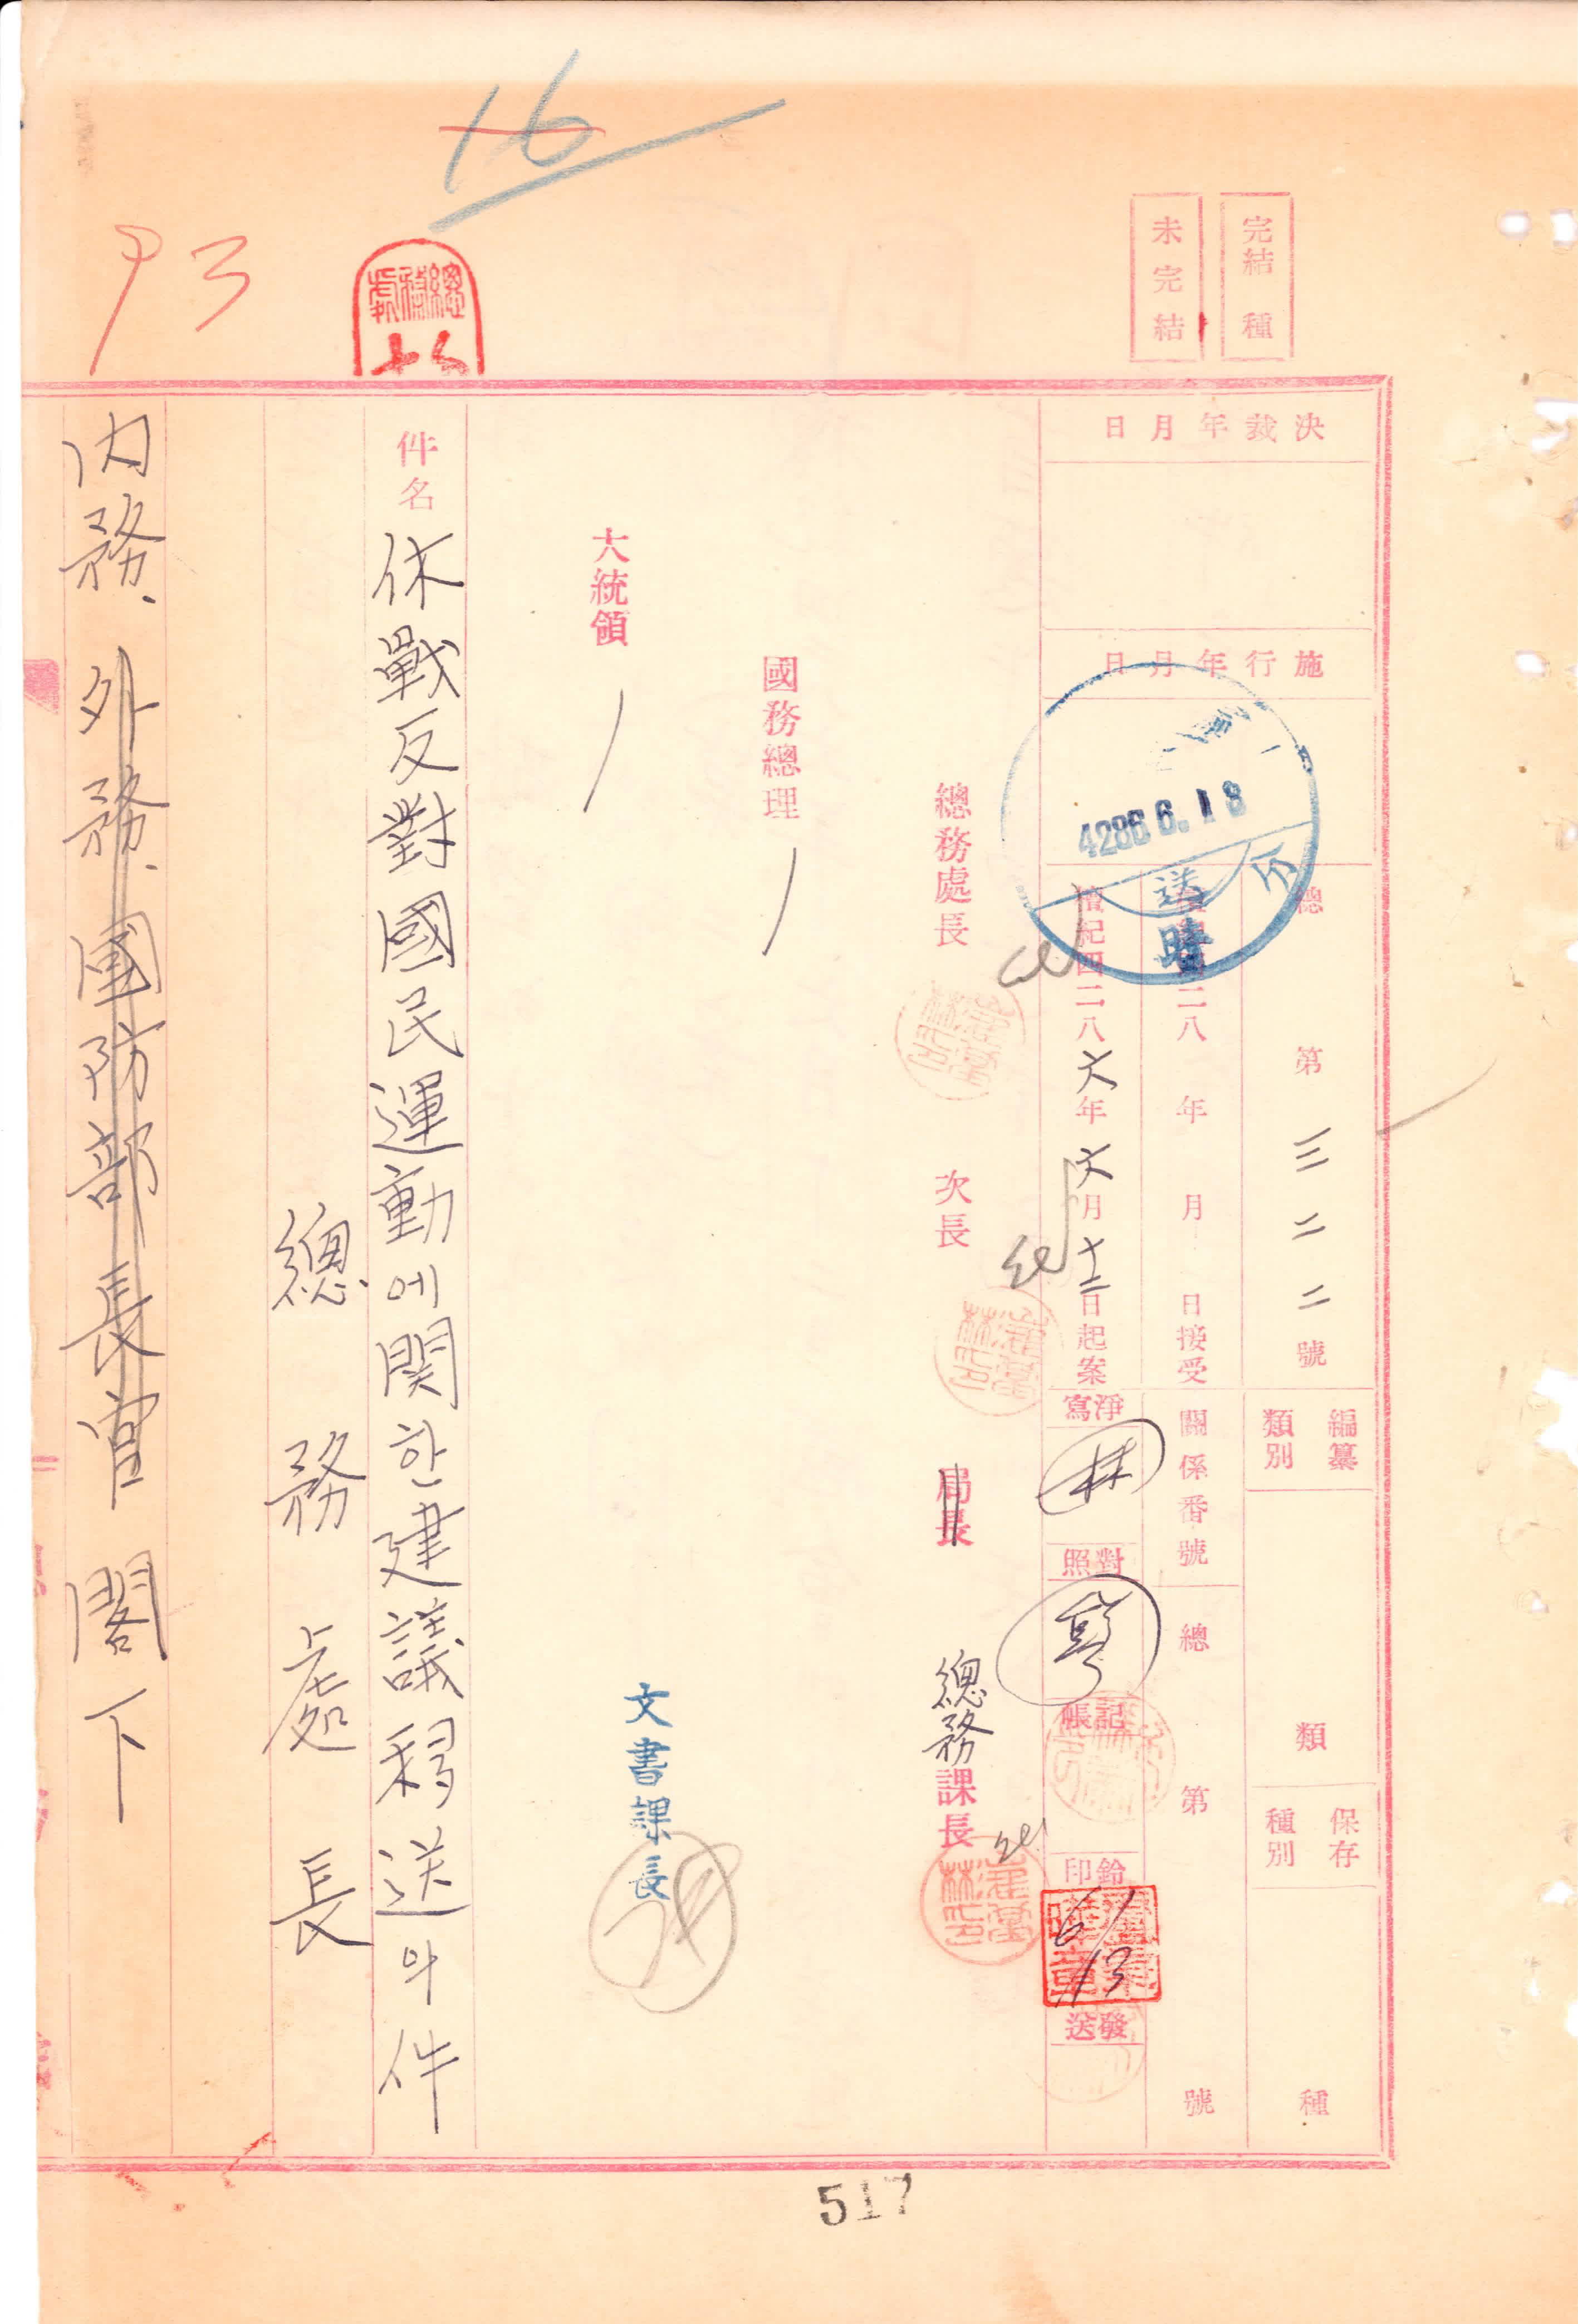 16
93
完結 種
未完結
決裁年月日
施行年月日
4286.6.18
送
總 第三二二號
檀紀四二八 年 月 日接受
檀紀四二八六年六月十二日起案
編纂類別
類
保存種別
種
關係番號
總 第 號
淨寫
林
對照
記帳
鈐印
6/13
發送
總務處長
次長
局長
總務課長
國務總理
大統領
文書課長
件名 休戰反對國民運動에関한建議移送의件
總務處長
內務、外務、國防部長官 閣下
517